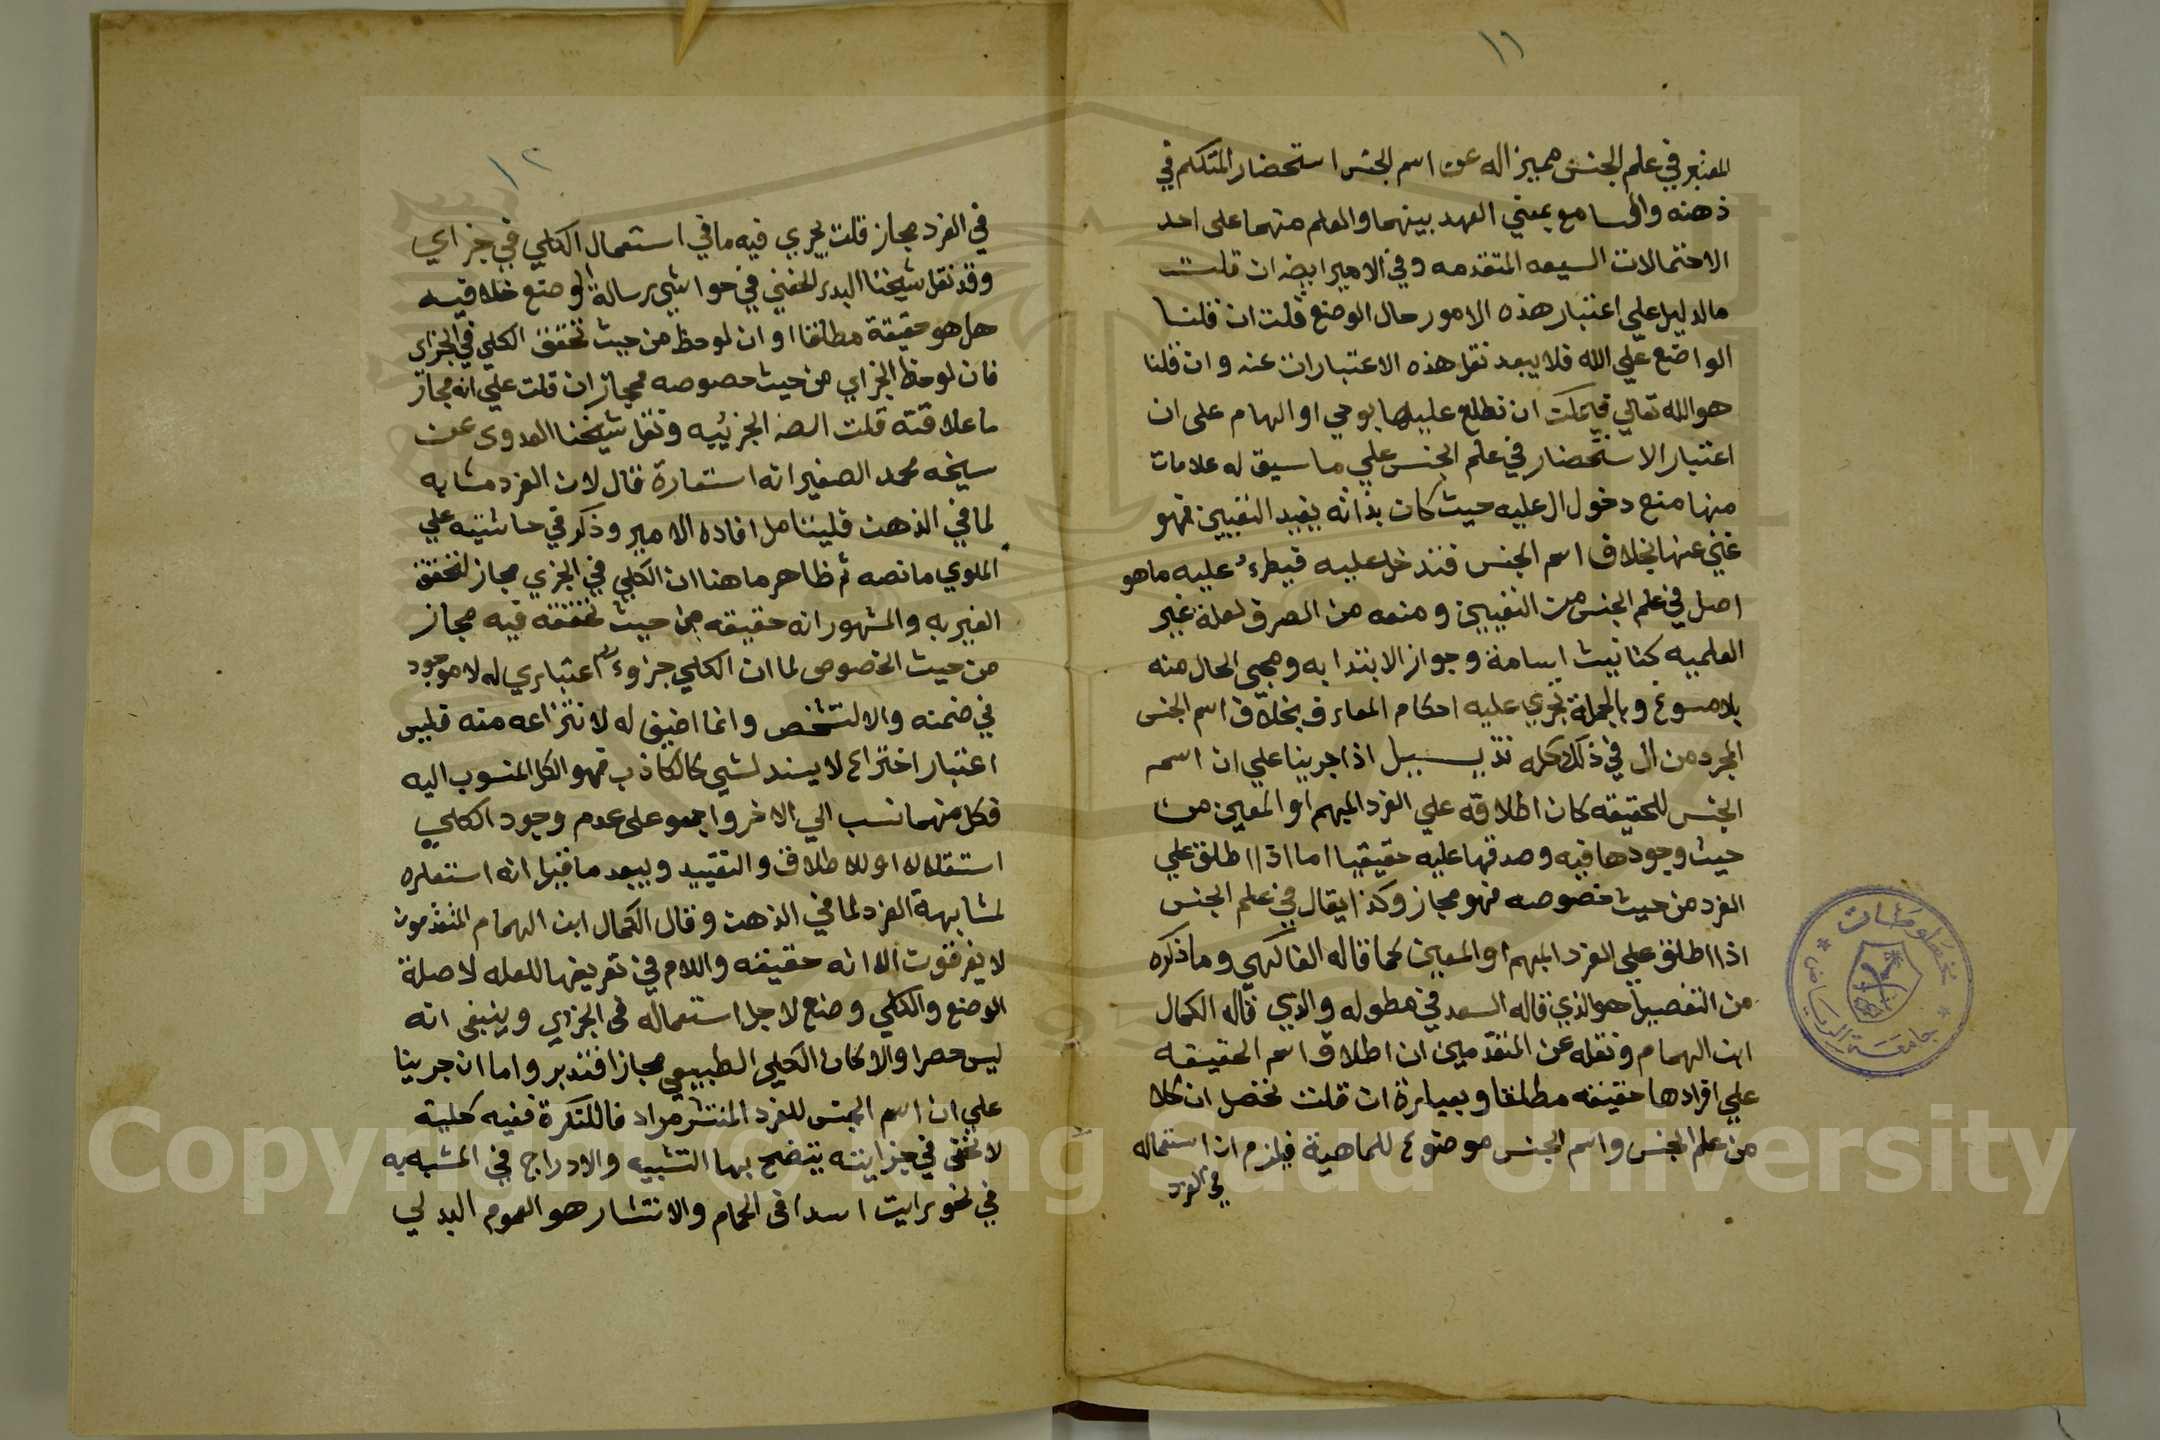 ١١
المعتبر في علم الجنس مميزا له عن اسم الجنس استحضار المتكلم في
ذهنه والسامع بمعني العهد بينهما والعلم منهما على احد
الاحتمالات السبعه المتقدمه وفي الامير ايضا ان قلت
ما الدليل علي اعتبار هذه الامور حال الوضع قلت ان قلنا
الواضع غير الله فلا يبعد نقل هذه الاعتبارات عنه وان قلنا
هو الله تعالي فيمكن ان نطلع عليها بوحي او الهام على ان
اعتبار الاستحضار في علم الجنس علي ما سيق له علامات
منها منع دخول ال عليه حيث كان بذاته يفيد التعيين فهو
غني عنها بخلاف اسم الجنس فتدخل عليه فيطرء عليه ما هو
اصل في علم الجنس من التعيين ومنعه من الصرف لعلة غير
العلميه كتانيث اسامة وجواز الابتدا به ومجي الحال منه
بلا مسوغ وبالجملة تجري عليه احكام المعارف بخلاف اسم الجنس
المجرد من ال في ذلك كله تذييل اذا جرينا علي ان اسم
الجنس للحقيقه كان اطلاقه علي الفرد المبهم او المعين من
حيث وجودها فيه وصدقها عليه حقيقيا اما اذا اطلق علي
الفرد من حيث خصوصه فهو مجاز وكذا يقال في علم الجنس
اذا اطلق علي الفرد المبهم او المعين كما قاله الفاكهي وما ذكره
من التفصيل هو الذي قاله السعد في مطوله والذي قاله الكمال
ابن الهمام ونقله عن المتقدمين ان اطلاق اسم الحقيقه
علي افرادها حقيقه مطلقا وبعبارة ان قلت تحصل ان كلا
من علم الجنس واسم الجنس موضوع للماهية فيلزم ان استعماله
في الفرد
مخطوطات
جامعة الرياض
١٢
في الفرد مجاز قلت يجري فيه ما في استعمال الكلي في جزاي
وقد نقل شيخنا البدر الحفني في حواشي رسالة الوضع خلا فيه
هل هو حقيقة مطلقا او ان لوحظ من حيث تحقق الكلي في الجزاي
فان لوحظ الجزاي من حيث خصوصه مجاز ان قلت علي انه مجاز
ما علاقته قلت الجزئيه ونقل شيخنا العدوى عن
سيخه محمد الصغير انه استعارة قال لان الفرد مشابه
لما في الذهن فليتامل افاده الامير وذكر في حاشيته علي
الملوي ما نصه ثم ظاهر ما هنا ان الكلي في الجزي مجاز لتحقق
الغير به والمشهور انه حقيقه من حيث تحققه فيه مجاز
من حيث الخصوص لما ان الكلي جزوء اعتباري له لا موجود
في ضمنه والا لتشخص وانما اضيف له لانتزاعه منه فليس
اعتبار اختراع لا يسند لشي كالكاذب فهو الكل المنسوب اليه
فكل منهما نسب الي الاخر واجمعو على عدم وجود الكلي
استقلالا اولا الاطلاق والتقييد ويبعد ما قيل انه استعاره
لمشابهة الفرد لما في الذهن وقال الكمال ابن الهمام المتقدمون
لا يعرفون الا انه حقيقه واللام في تعريفها للعله لا صلة
الوضع والكلي وضع لاجل استعماله في الجزاي وينبغي انه
ليس حصرا والا كان الكلي الطبيعي مجازا فتدبر واما ان جرينا
علي ان اسم الجنس للفرد المنتشر مراد فا للنكرة ففيه كلية
لا تخفى في جزايته يتضح بها التشبيه والادراج في المشبه به
في نحو رايت اسدا في الحمام والانتشار هو العموم البدلي
Copyright © King Saud University